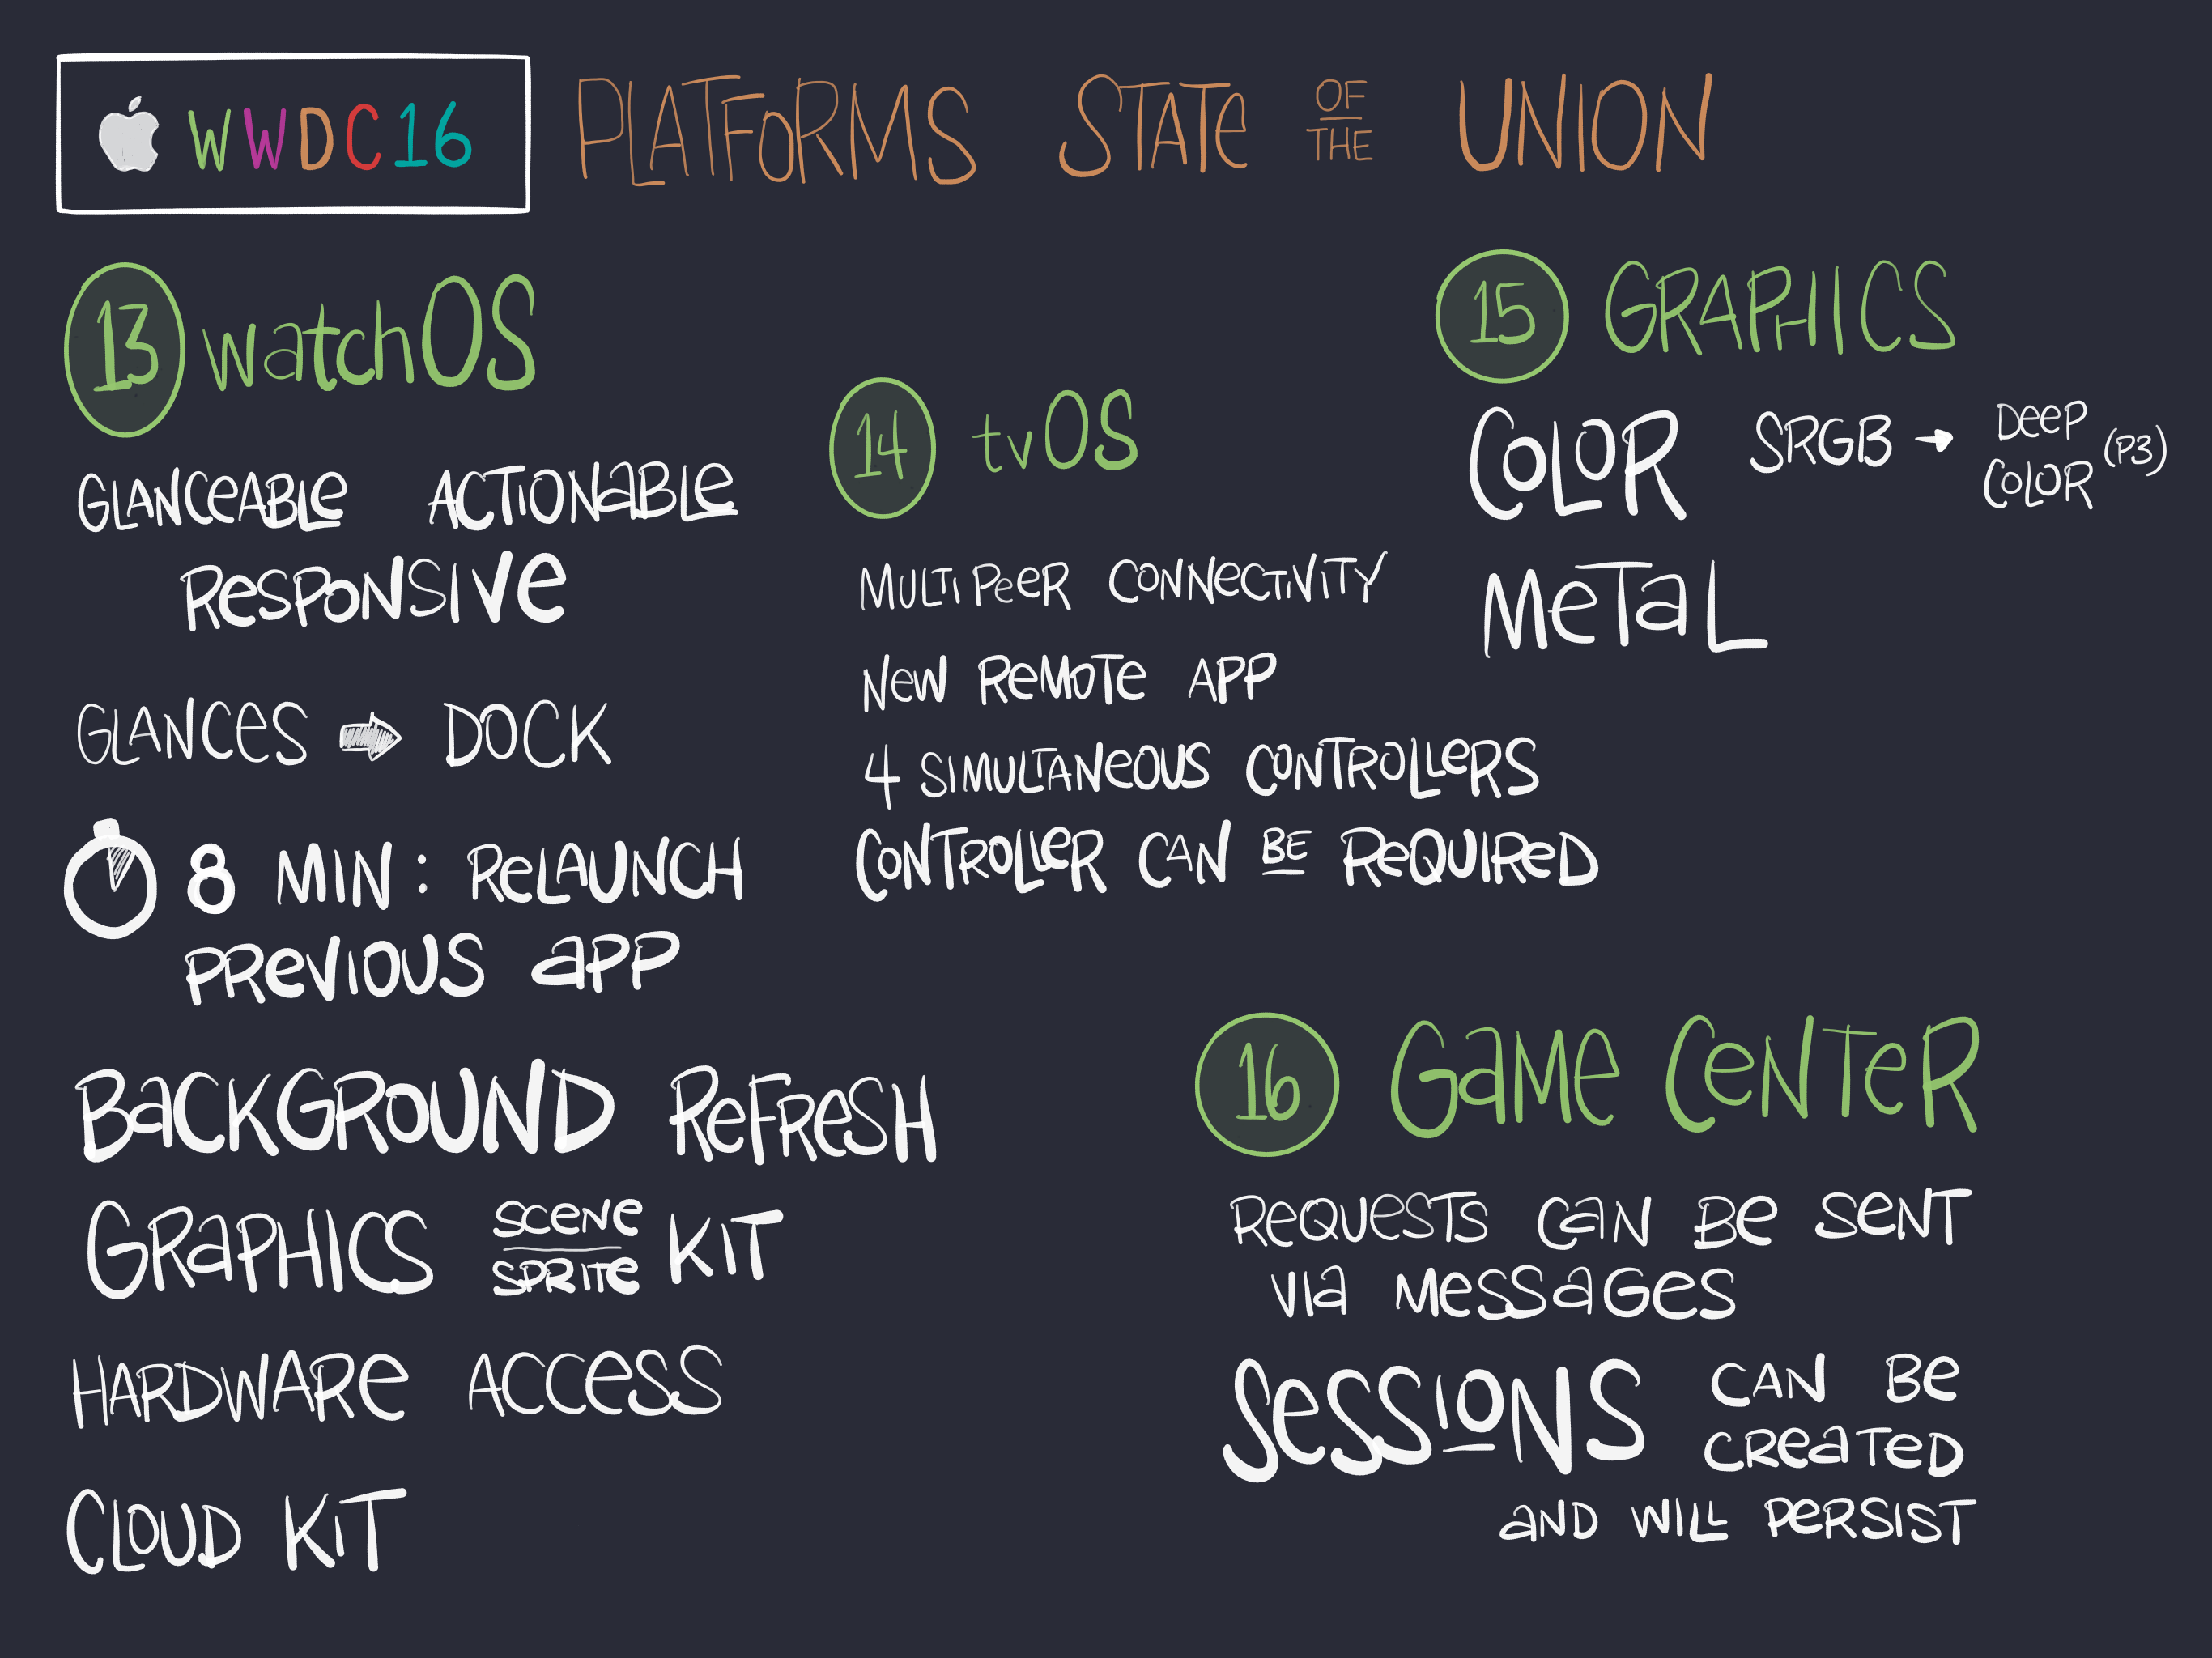 WWDC16
PLATFORMS STATE OF THE UNION
13 watchOS
GLANCEABLE ACTIONABLE
RESPONSIVE
GLANCES → DOCK
8 MIN: RELAUNCH
PREVIOUS APP
BACKGROUND REFRESH
GRAPHICS SCENE SPRITE KIT
HARDWARE ACCESS
CLOUD KIT
14 tvOS
MULTIPEER CONNECTIVITY
NEW REMOTE APP
4 SIMULTANEOUS CONTROLLERS
CONTROLLER CAN BE REQUIRED
15 GRAPHICS
COLOR SRGB → DEEP COLOR (P3)
METAL
16 GAME CENTER
REQUESTS CAN BE SENT
VIA MESSAGES
SESSIONS CAN BE
CREATED
AND WILL PERSIST